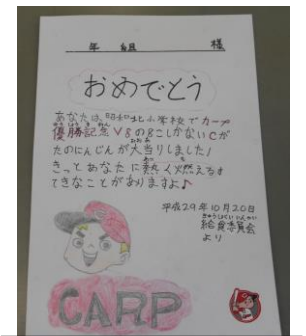 年 組 様
おめでとう
あなたは、昭和北小学校でカープ
優勝記念V8の8こしかないCが
たのにんじんが大当りしました!
きっとあなたに熱く燃えるす
てきなことがありますよ♪
平成29年10月20日
給食委員会
より
CARP